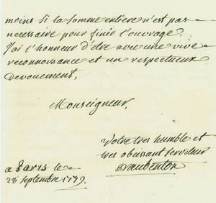 moins si la somme entiere n'est pas
necessaire pour finir l'ouvrage.
J'ai l'honneur d'être avec une vive
reconnoissance et un respectueux
devouement,
Monseigneur,
Votre très humble et
très obeissant serviteur
Daubenton
a Paris le
28 septembre 1779.